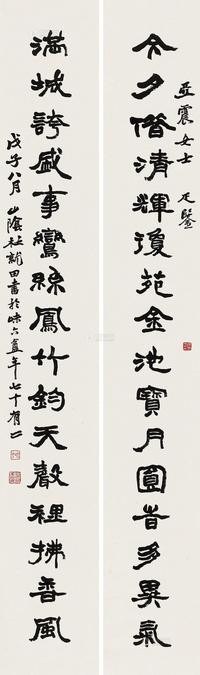 亞震女士 正鑒
今夕偕清輝瓊苑金池寶月圓旹多異氣
滿城誇盛事鸞絲鳳竹鈞天聲裡拂香風
戊子八月山陰杜就田書於味六盦年七十有二